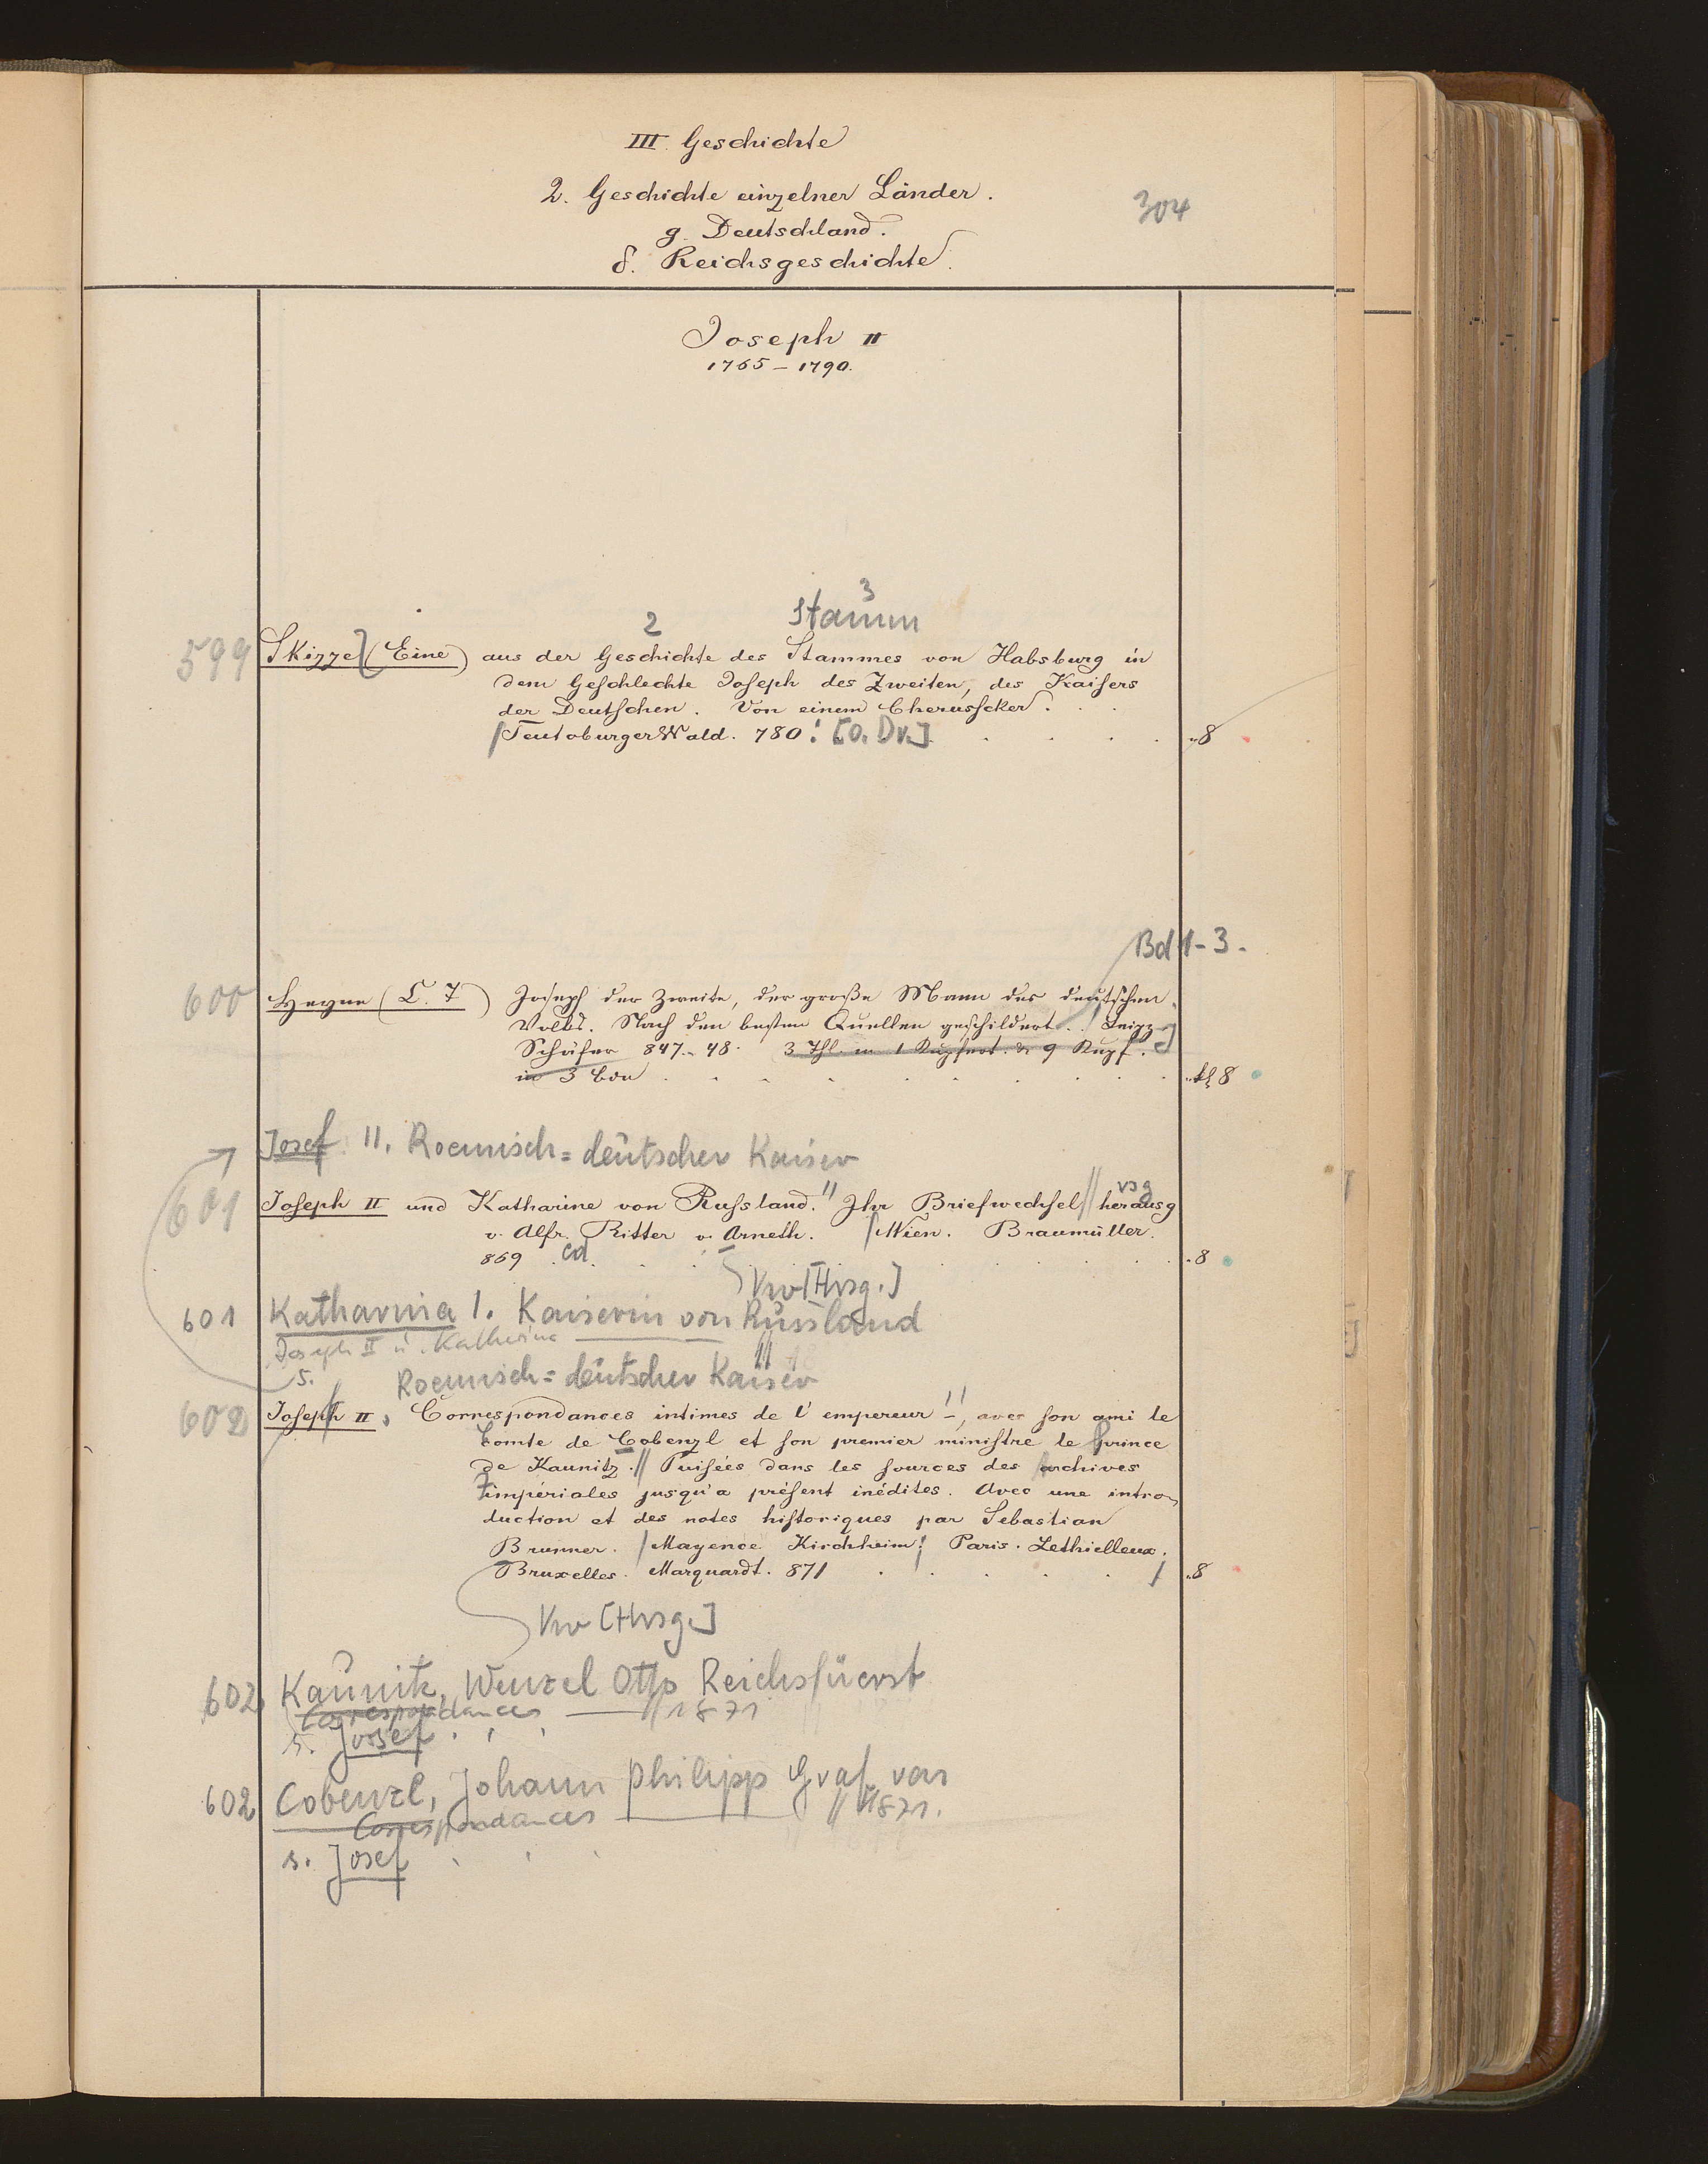 III. Geschichte
2. Geschichte einzelner Länder.
304
g. Deutschland.
δ. Reichsgeschichte.
Joseph II
1765 – 1790.
3
2 Stamm
599 Skizze (Eine) aus der Geschichte des Stammes von Habsburg in
dem Geschlechte Joseph des Zweiten, des Kaisers
der Deutschen. Von einem Cherussker.
Teutoburger Wald. 780. [O. Dr.] 8
Bd 1-3.
600 Heyne (C. T) Joseph der Zweite, der große Mann des deutschen
Volks. Nach den besten Quellen geschildert. Leipz
Schäfer 847-48. 3 Thl. m 1 Kupfert. & 9 Kupf.
in 3 Bdn kl 8
Josef II. Roemisch=deutscher Kaiser
601 Joseph II und Katharine von Russland." Ihr Briefwechsel // herausg
v. Alfr. Ritter v. Arneth. Wien. Braumüller.
869 . 8
Vw [Hrsg.]
601 Katharina I. Kaiserin von Russland
Joseph II u. Katharina
s.
Roemisch=deutscher Kaiser
602 Joseph II, Correspondances intimes de l'empereur –", avec son ami le
Comte de Cobenzl et son premier ministre le prince
de Kaunitz. // Puisées dans les sources des archives
impériales jusqu'a présent inédites. Avec une intro-
duction et des notes historiques par Sebastian
Brunner. Mayence Kirchheim; Paris. Lethielleux.
Bruxelles. Marquardt. 871 8
Vw [Hrsg.]
602 Kaunitz, Wenzel Otto Reichsfürst
Correspondances // 1871
s. Josef
602 Cobenzl, Johann Philipp Graf von
Correspondances // 1871.
s. Josef